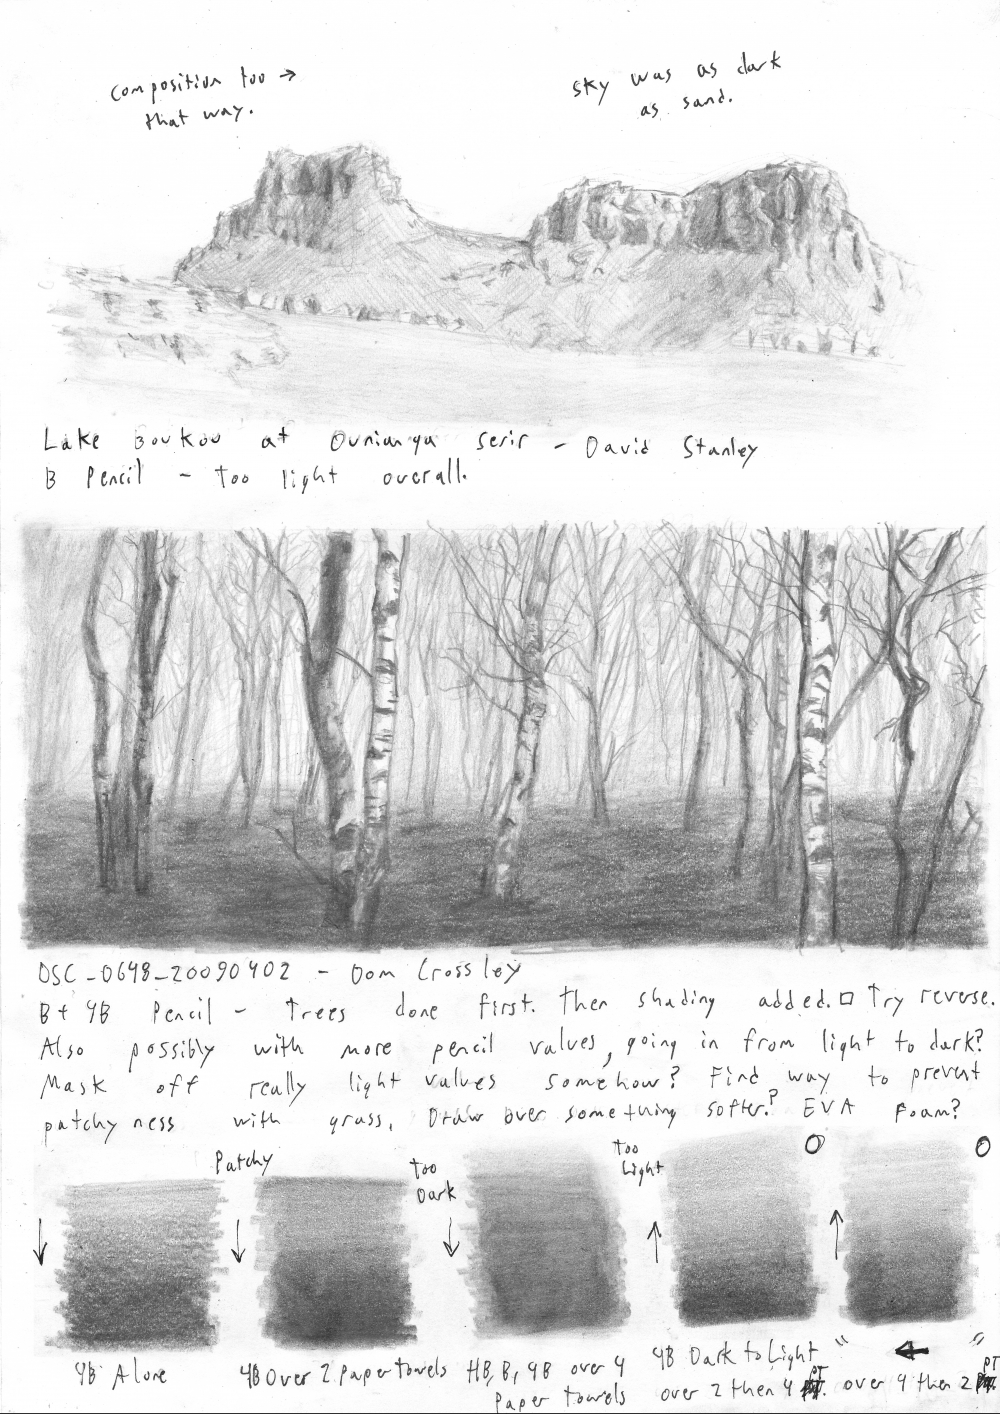 composition too →
that way.
sky was as dark
as sand.
Lake Boukou at Ounianga serir - David Stanley
B Pencil - too light overall.
DSC_0648_20090402 - Dom Crossley
B+ 4B Pencil - Trees done first. Then shading added. □ Try reverse.
Also possibly with more pencil values, going in from light to dark?
Mask off really light values somehow? Find way to prevent
patchyness with grass. Draw over something softer? EVA Foam?
Patchy
Too
Dark
Too
Light
O
O
4B Alone
4B Over 2 Paper towels
HB, B, 4B over 4
Paper towels
4B Dark to Light
over 2 then 4 PT.
" ← "
over 4 then 2 PT